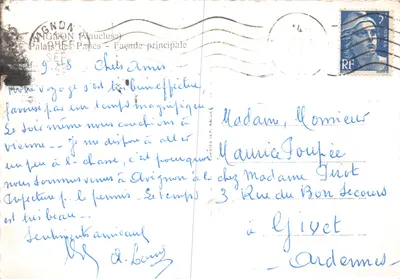 AVIGNON
AVIGNON (Vaucluse)
Palais des Papes - Façade principale
RF
9 8 Chers Amis
Notre voyage s'est bien effectué,
favorisé par un temps magnifique
Le soir même nous couchions à
Vienne -- Je me dispose à aller
un peu à la chasse, c'est pourquoi
nous sommes venus à Avignon à la
Préfecture p. le permis. Le temps
est très beau --
Sentiments amicaux
Madame, Monsieur
Maurice Poupée
chez Madame Pirot
3 Rue du Bon Secours
à Givet
Ardennes